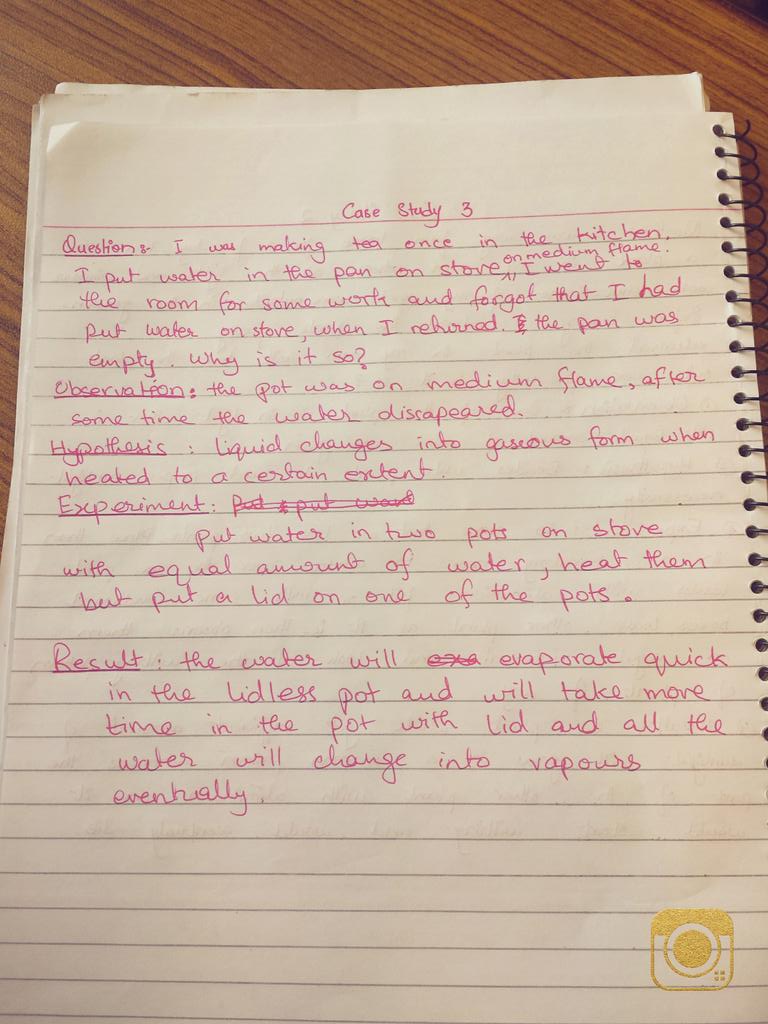 Case Study 3
Question:- I was making tea once in the kitchen.
I put water in the pan on stove, on medium flame. I went to
the room for some work and forgot that I had
put water on stove, when I returned. the pan was
empty. why is it so?
Observation: the pot was on medium flame, after
some time the water dissapeared.
Hypothesis: liquid changes into gaseous form when
heated to a certain extent.
Experiment:
put water in two pots on stove
with equal amount of water, heat them
but put a lid on one of the pots.
Result: the water will evaporate quick
in the lidless pot and will take more
time in the pot with lid and all the
water will change into vapours
eventually.